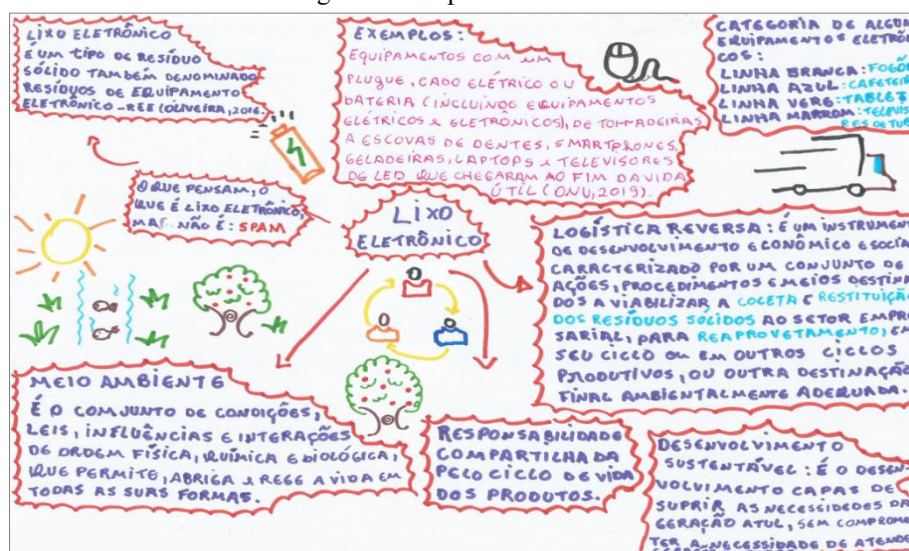 LIXO ELETRÔNICO
É UM TIPO DE RESÍDUO
SÓLIDO TAMBÉM DENOMINADO
RESÍDUOS DE EQUIPAMENTO
ELETRÔNICO - REE (OLIVEIRA, 2016
EXEMPLOS:
EQUIPAMENTOS COM UM
PLUGUE, CABO ELÉTRICO OU
BATERIA (INCLUINDO EQUIPAMENTOS
ELÉTRICOS E ELETRÔNICOS), DE TORRADEIRAS
A ESCOVAS DE DENTES, SMARTPHONES,
GELADEIRAS, LAPTOPS E TELEVISORES
DE LED QUE CHEGARAM AO FIM DA VIDA
ÚTIL (ONU, 2019).
CATEGORIA DE ALGUN
EQUIPAMENTOS ELETRÔN
COS:
LINHA BRANCA: FOGÕE
LINHA AZUL: CAFETEIR
LINHA VERE: TABLET
LINHA MARROM: TELEVIS
RES DE TUB
O QUE PENSAM, O
QUE É LIXO ELETRÔNICO,
MAS NÃO É: SPAM
LIXO
ELETRÔNICO
LOGÍSTICA REVERSA: É UM INSTRUMENT
DE DESENVOLVIMENTO ECONÔMICO E SOCIA
CARACTERIZADO POR UM CONJUNTO DE
AÇÕES, PROCEDIMENTOS E MEIOS DESTINA
DOS A VIABILIZAR A COLETA E RESTITUIÇÃO
DOS RESÍDUOS SÓLIDOS AO SETOR EMPRE
SARIAL, PARA REAPROVETAMENTO, EM
SEU CICLO OU EM OUTROS CICLOS
PRODUTIVOS, OU OUTRA DESTINAÇÃO
FINAL AMBIENTALMENTE ADEQUADA.
MEIO AMBIENTE
É O COMJUNTO DE CONDIÇÕES,
LEIS, INFLUÊNCIAS E INTERAÇÕES
DE ORDEM FÍSICA, QUÍMICA E BIOLÓGICA,
QUE PERMITE, ABRIGA E REGE A VIDA EM
TODAS AS SUAS FORMAS.
RESPONSABILIDADE
COMPARTILHADA
PELO CICLO DE VIDA
DOS PRODUTOS.
DESENVOLVIMENTO
SUSTENTÁVEL: É O DESEN-
VOLVIMENTO CAPAS DE
SUPRIR AS NECESSIDEDES DA
GERAÇÃO ATUL, SEM COMPROME
TER A NECESSIDADE DE ATENDE